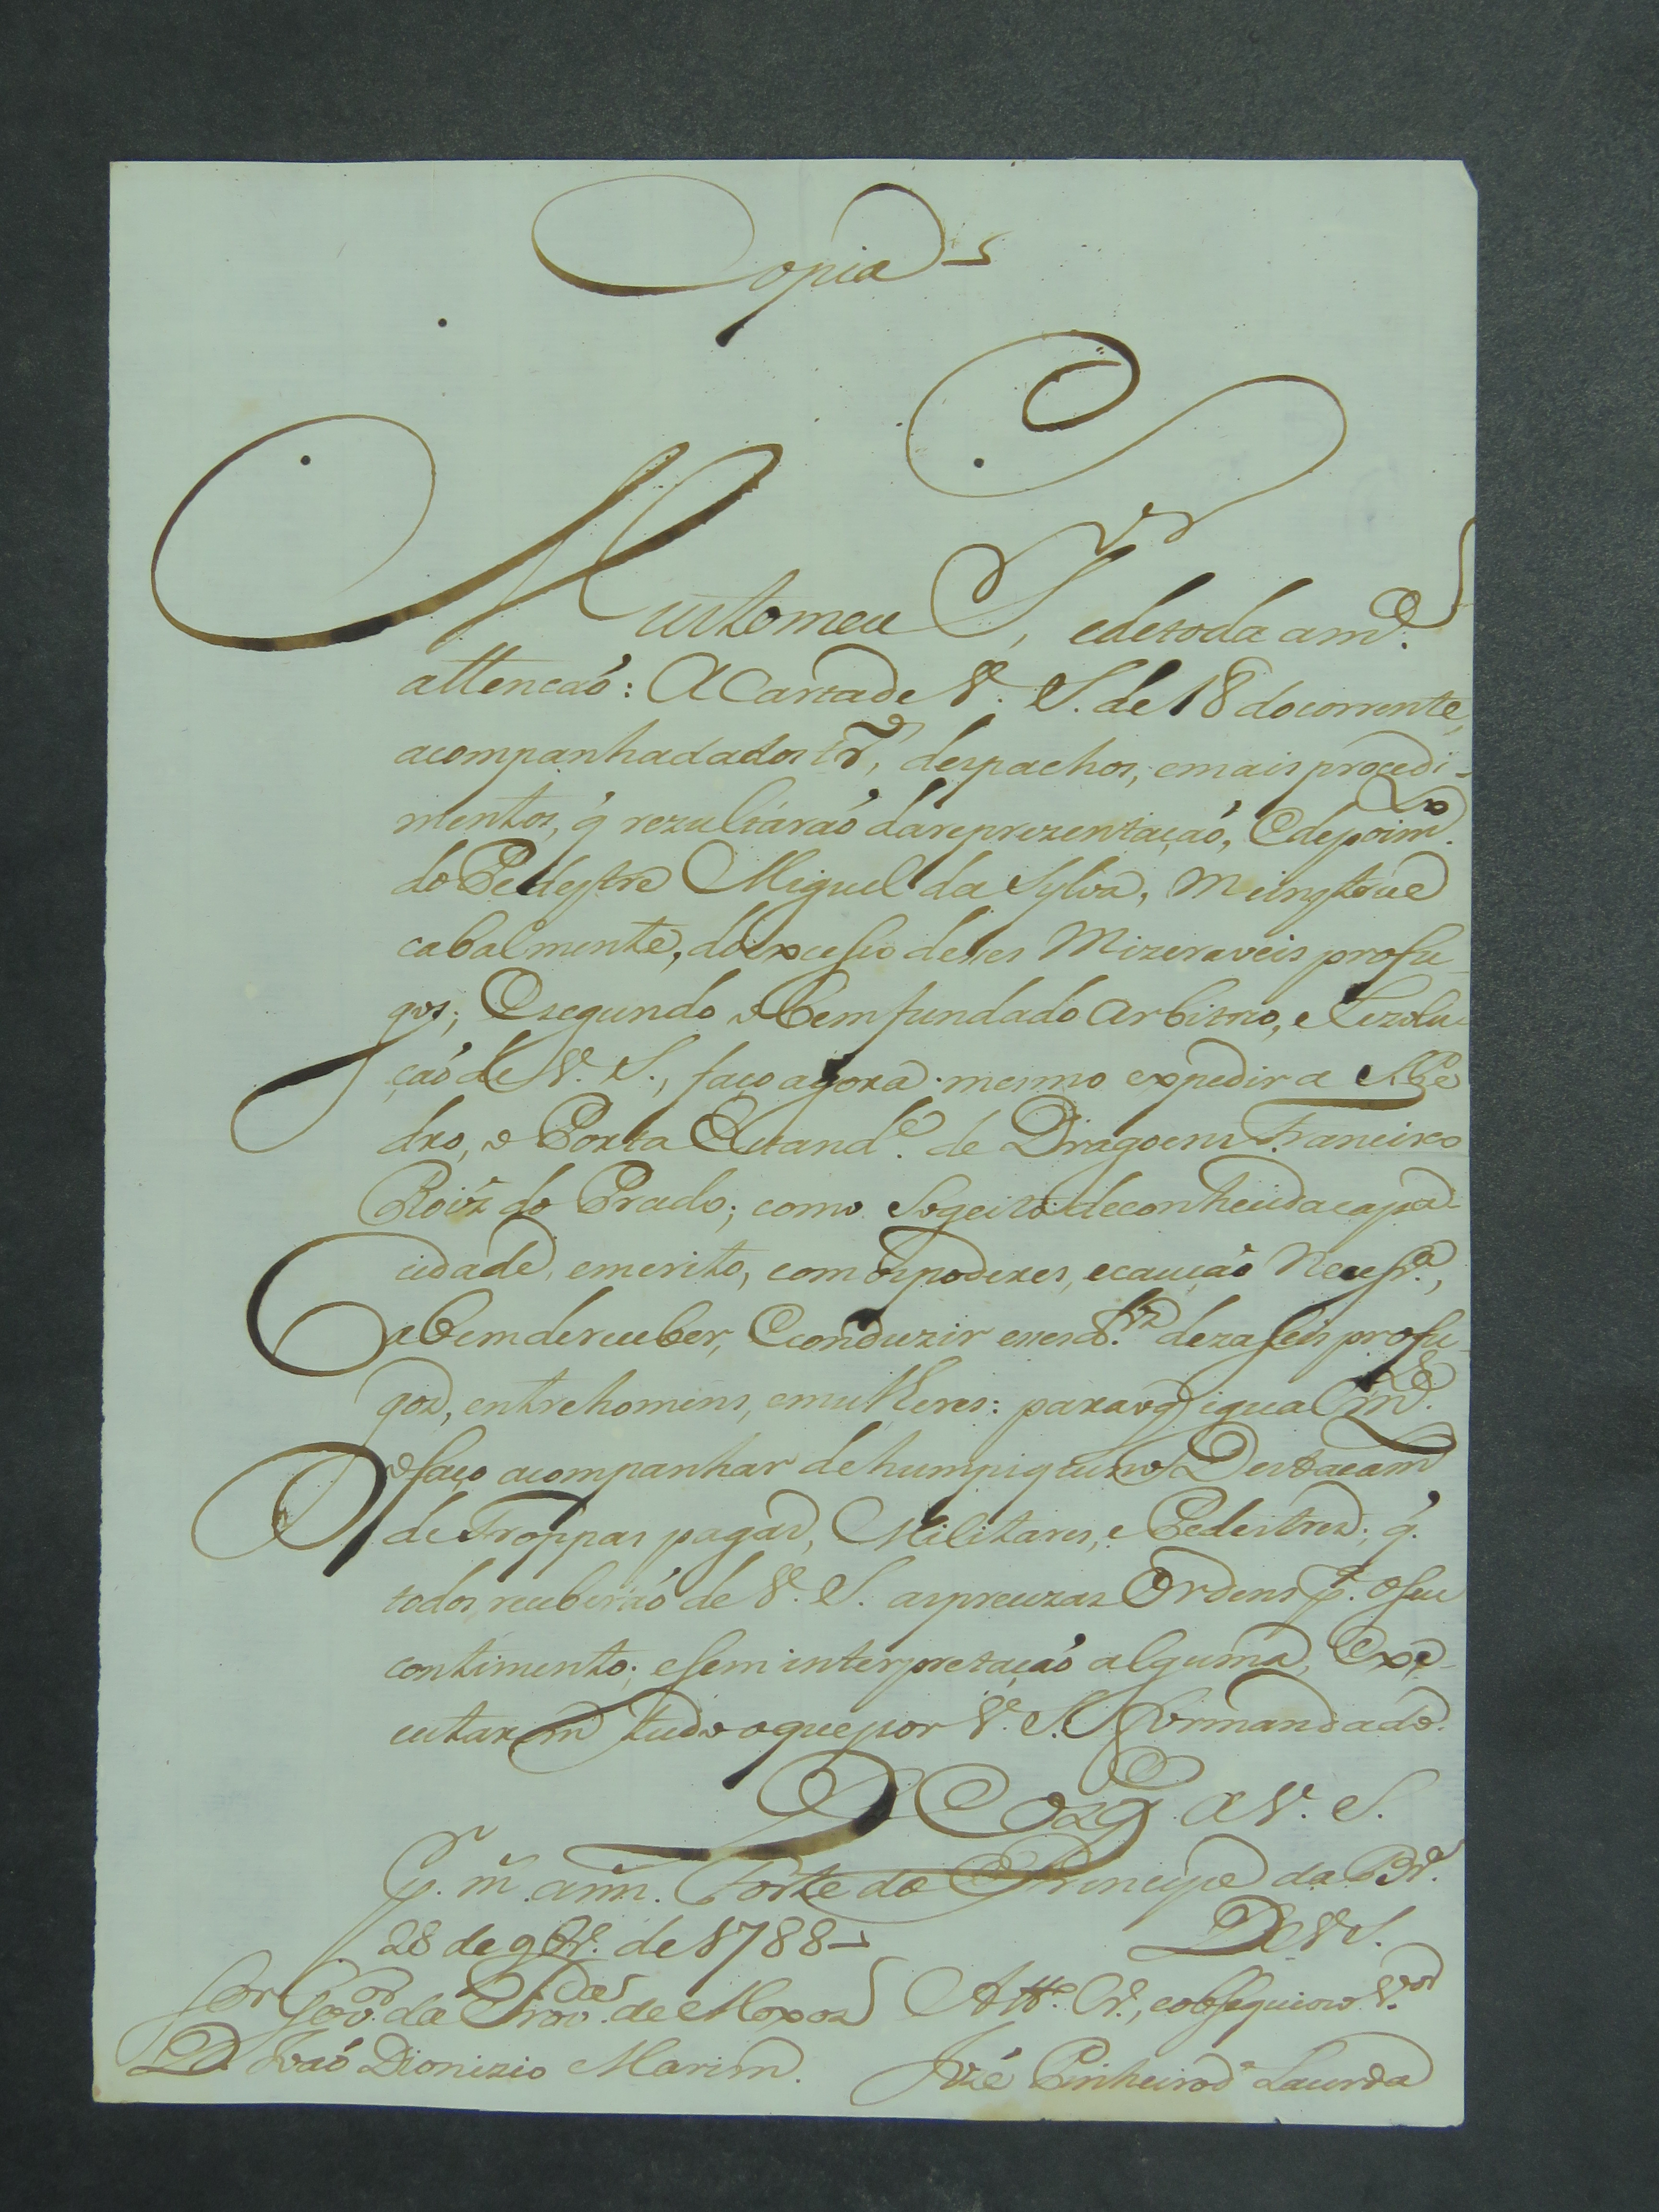 Copia
Muito meu Sr, e de toda a m.e
attencaõ: A Carta de V. S. de 18 do corrente,
acompanhada dos despachos, e mais procedi-
mentos, q̃ rezultáraõ da reprezentaçaõ, e depoim.to
do Pedestre Miguel da Sylva, me instrue
cabalmente, do excesso desses Mizeraveis profu-
gos; e segundo o bem fundado arbitrio, e Rezolu-
çaõ de V. S., faço agora mesmo expedir a S. Pe
dro, o Porta Estand.e de Dragoens Francisco
Roiz do Prado; como Sogeito de conhecida capa-
cidade, e merito, com os poderes, e cauçaõ Necess.a,
a bem de receber, e conduzir esses dezaseis profu-
gos, entre homens, e mulheres: para o q̃ igualm.e
o faço acompanhar de hum piqueno Destacam
de Troppas pagas, Militares, e Pedestres; q̃
todos receberáõ de V. S. as precizas Ordens p.a o seu
contimento; e sem interpretaçaõ alguma, Exe-
cutarem tudo o que por V. S. for mandado.
D.s g.e a V. S.
p. m. ann. Forte do Principe da B.a
28 de 9br.o de 1788
De V. S.
Sor Gov.or da Prov.a de Moxos
Att.o V., e obsequiozo V.or
D. Joaõ Dionizio Marim.
Jozé Pinheiro de Lacerda